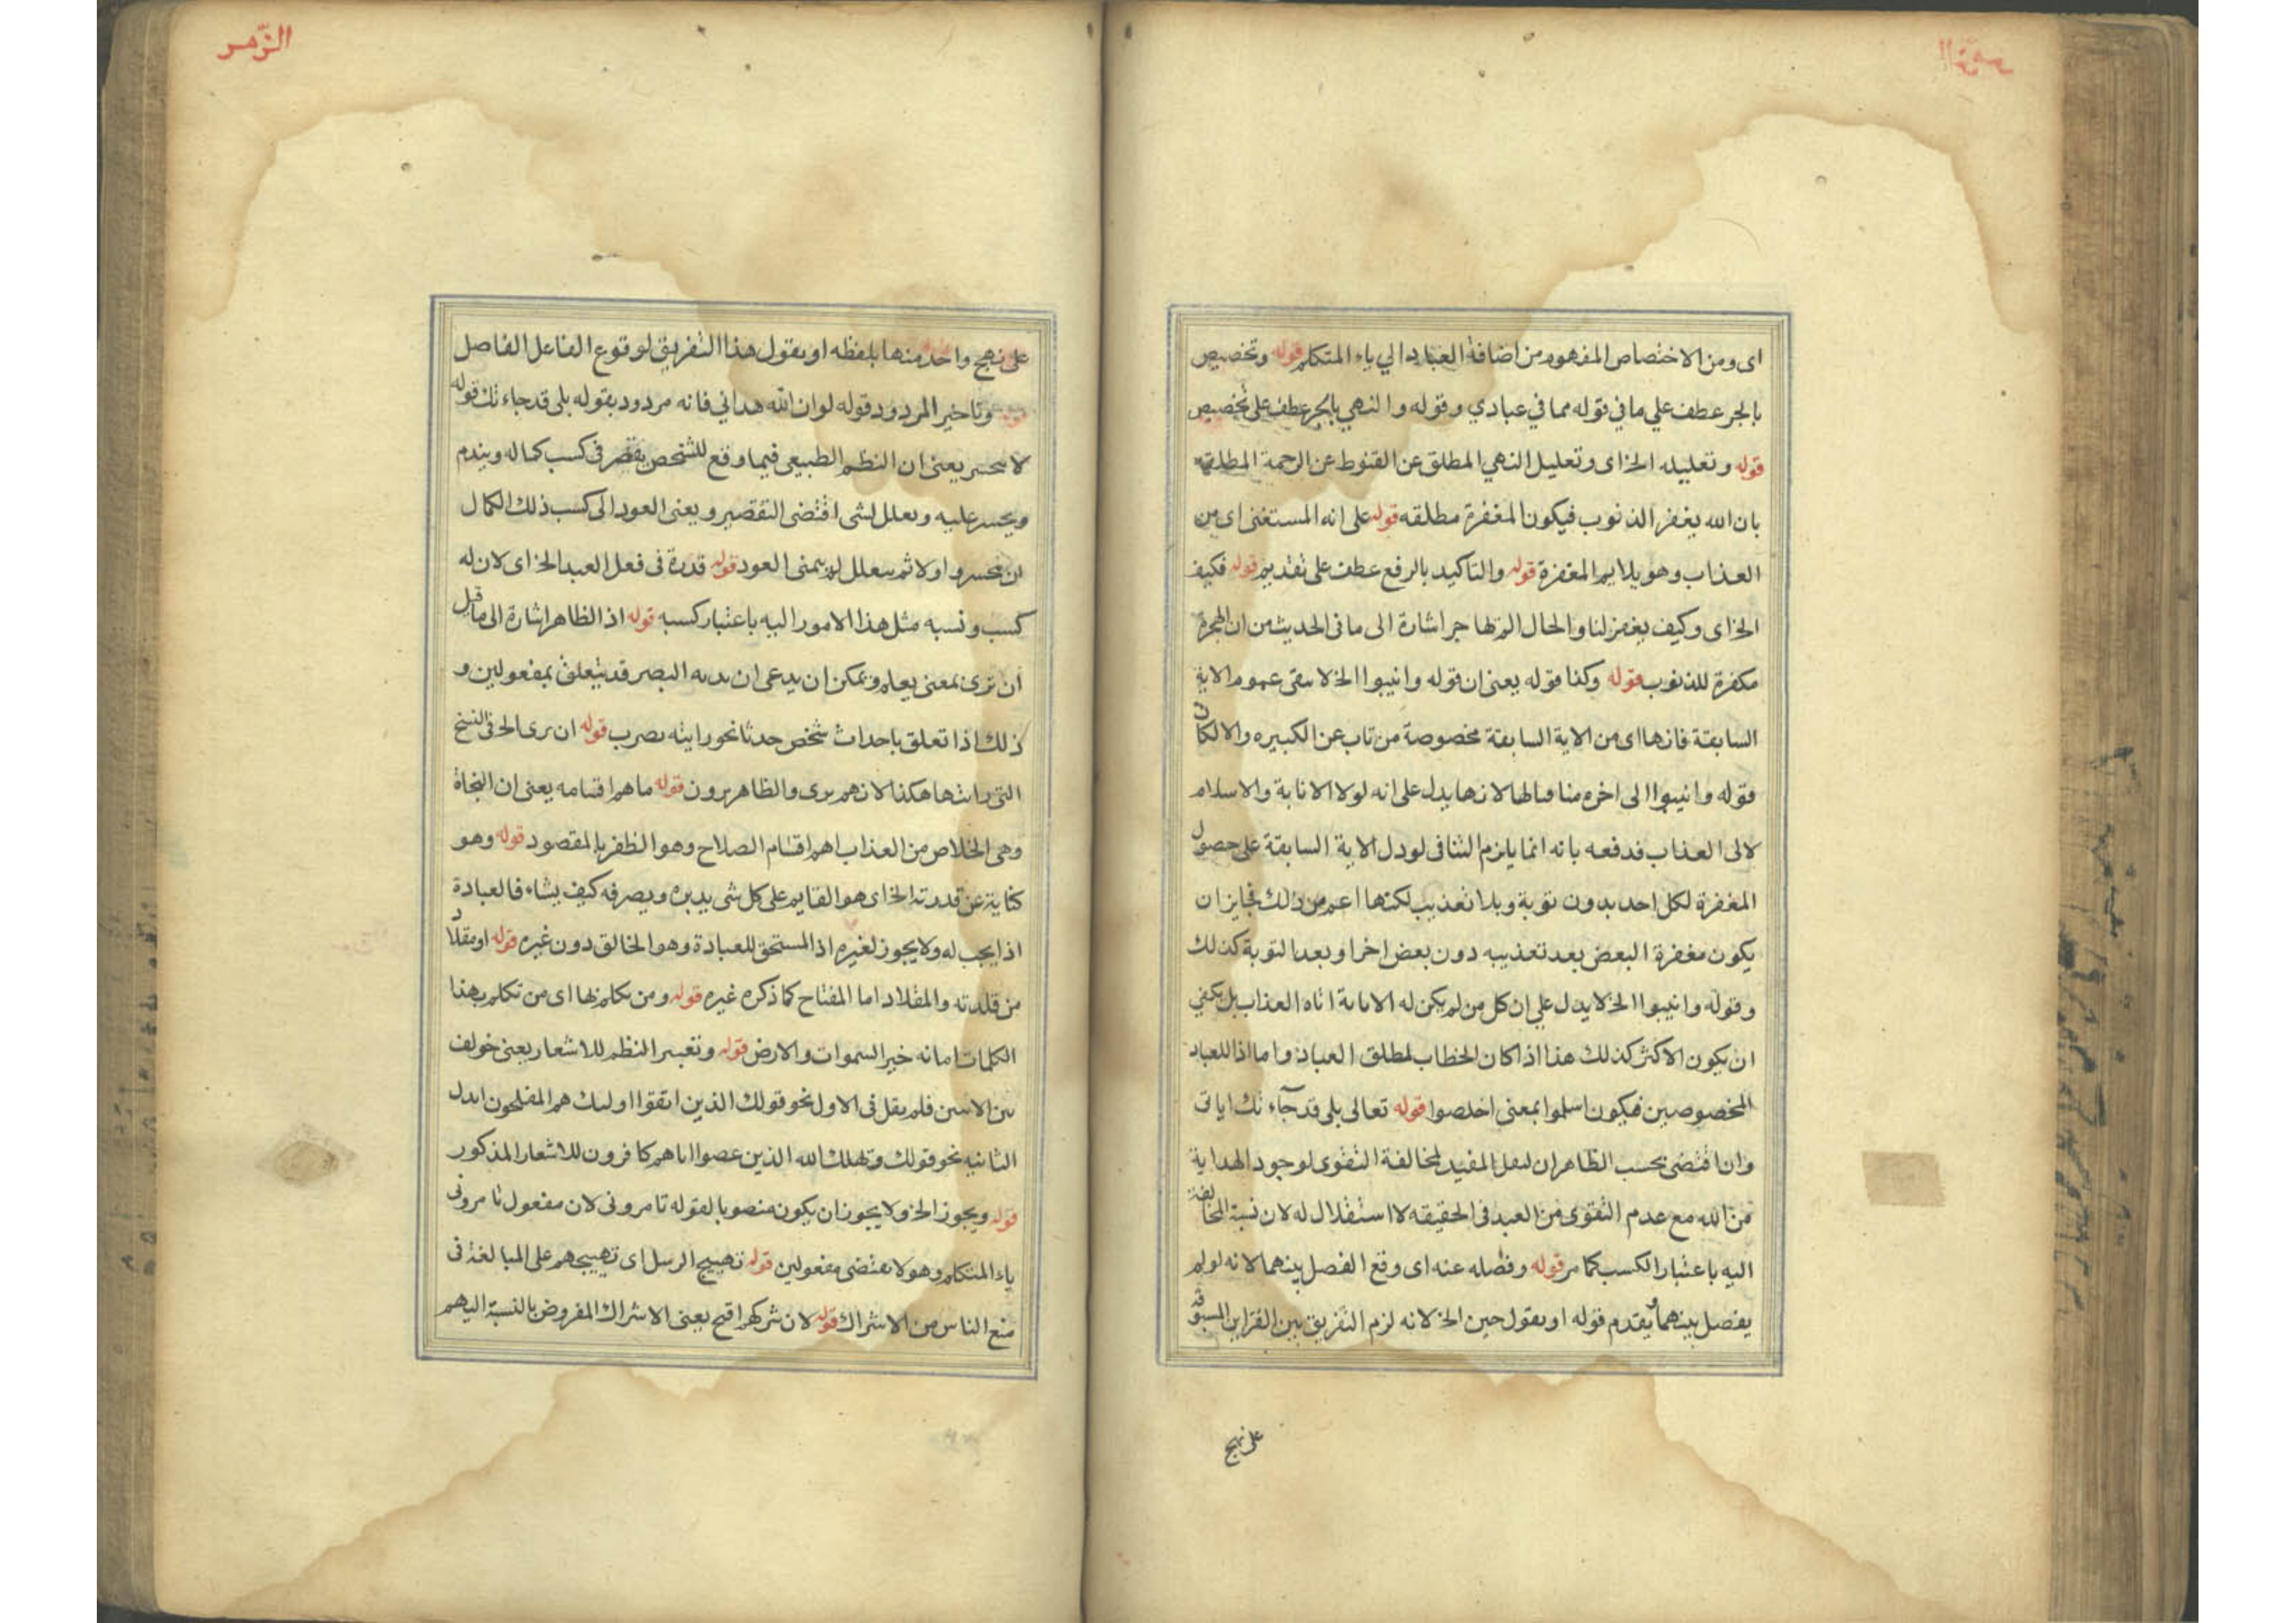 اى ومن الاختصاص المفهوم من اضافة العباد الي ياء المتكلم قوله وتخصيص
بالجر عطف علي ما في قوله مما في عبادي وقوله والنهي بالجر عطف على تخصيص
قوله وتعليله الخ اى وتعليل النهي المطلق عن القنوط عن الرحمة المطلقة
بان الله يغفر الذنوب فيكون المغفرة مطلقه قوله على انه المستغنى اى من
العذاب وهو يلايم المغفرة قوله والتاكيد بالرفع عطف على تقديم قوله فكيف
الخ اى وكيف يغفر لنا والحال اشارة الى ما فى الحديث من ان الهجرة
مكفرة للذنوب قوله وكذا قوله يعنى ان قوله وانيبوا الخ لا ينفى عموم الاية
السابقة فانها اى من الاية السابقة مخصوصة من تاب عن الكبيره والا لكان
قوله وانيبوا الى اخره منافيا لها لانها يدل على انه لولا الانابة والاسلام
لاتى العذاب فدفعه بانه انما يلزم التنافى لو دل الاية السابقة على حصول
المغفرة لكل احد بدون توبة وبلا تعذيب لكنها اعم من ذلك فجايز ان
يكون مغفرة البعض بعد تعذيبه دون بعض اخر او بعد التوبة كذلك
وقوله وانيبوا الخ لا يدل علي ان كل من لم يكن له الانابة اتاه العذاب بل يكفي
ان يكون الاكثر كذلك هذا اذا كان الخطاب لمطلق العباد واما اذا للعباد
المخصوصين فيكون اسلموا بمعنى اخلصوا قوله تعالى بلى قد جآء تك اياتى
وان اقتضى بحسب الظاهر ان لفعل المقيد لمخالفة التقوى لوجود الهداية
من الله مع عدم التقوى من العبد فى الحقيقه لا استقلال له لان نسبة المخالفة
اليه باعتبار الكسب كما مر قوله وفصله عنه اى وقع الفصل بينهما لانه لو لم
يفصل بينهما ويقدم قوله او يقول حين الخ لانه لزم التفريق بين القراين المسبوقة
على نهج
الزّمر
على نهج واحد منها بلفظه او يقول هذا التفريق لوقوع الفاعل الفاصل
قوله وتاخير المردود قوله لو ان الله هداني فانه مردود بقوله بلى قد جاءتك قوله
لا تحسر يعنى ان النظم الطبيعى فيما وقع للشخص يقصر فى كسب كماله ويندم
ويحسر عليه ويعلل لشى اقتضى التقصير ويعنى العود الى كسب ذلك الكمال
ان تحسروا اولا ثم يتعلل ثم يتمنى العود قوله قدرة فى فعل العبد الخ اى لان له
كسب ونسبه مثل هذا الامور اليه باعتبار كسبه قوله اذ الظاهر اشارة الى ما قيل
ان ترى بمعنى يعلم ويمكن ان يدعى ان رؤية البصر قد يتعلق بمفعولين و
ذلك اذا تعلق باحداث شخص حدثا نحو رايته يضرب قوله ان يرى الخ فى النسخ
التى رايتها هكذا لانهم يرى والظاهر يرون قوله ما هم اقسامه يعنى ان النجاة
وهى الخلاص من العذاب اهم اقسام الصلاح وهو الظفر بالمقصود قوله وهو
كناية عن قدرته الخ اى هو القايم على كل شى يدبره ويصرفه كيف يشاء فالعبادة
اذا يجب له ولا يجوز لغيره اذ المستحق للعبادة وهو الخالق دون غيره قوله او مقلاد
من قلدته والمقلاد اما المفتاح كما ذكره غيره قوله ومن تكلم بها اى من تكلم بهذا
الكلمات امانه خير السموات والارض قوله وتغيير النظم للاشعار يعنى خولف
بين الاسمين فلم يقل فى الاول نحو قولك الذين اتقوا اوليك هم المفلحون
الثانيه نحو قولك ويهلك الله الذين عصوا اناهم كافرون للاشعار المذكور
قوله ويجوز الخ ولا يجوز ان يكون منصوبا لقوله تامرونى لان مفعول تامرونى
ياء المتكلم وهو لا يقتضى مفعولين قوله تهييج الرسل اى تهييجهم على المبالغة فى
منع الناس من الاشراك قوله لان شركهم اقبح يعنى الاشراك المفروض بالنسبة اليهم